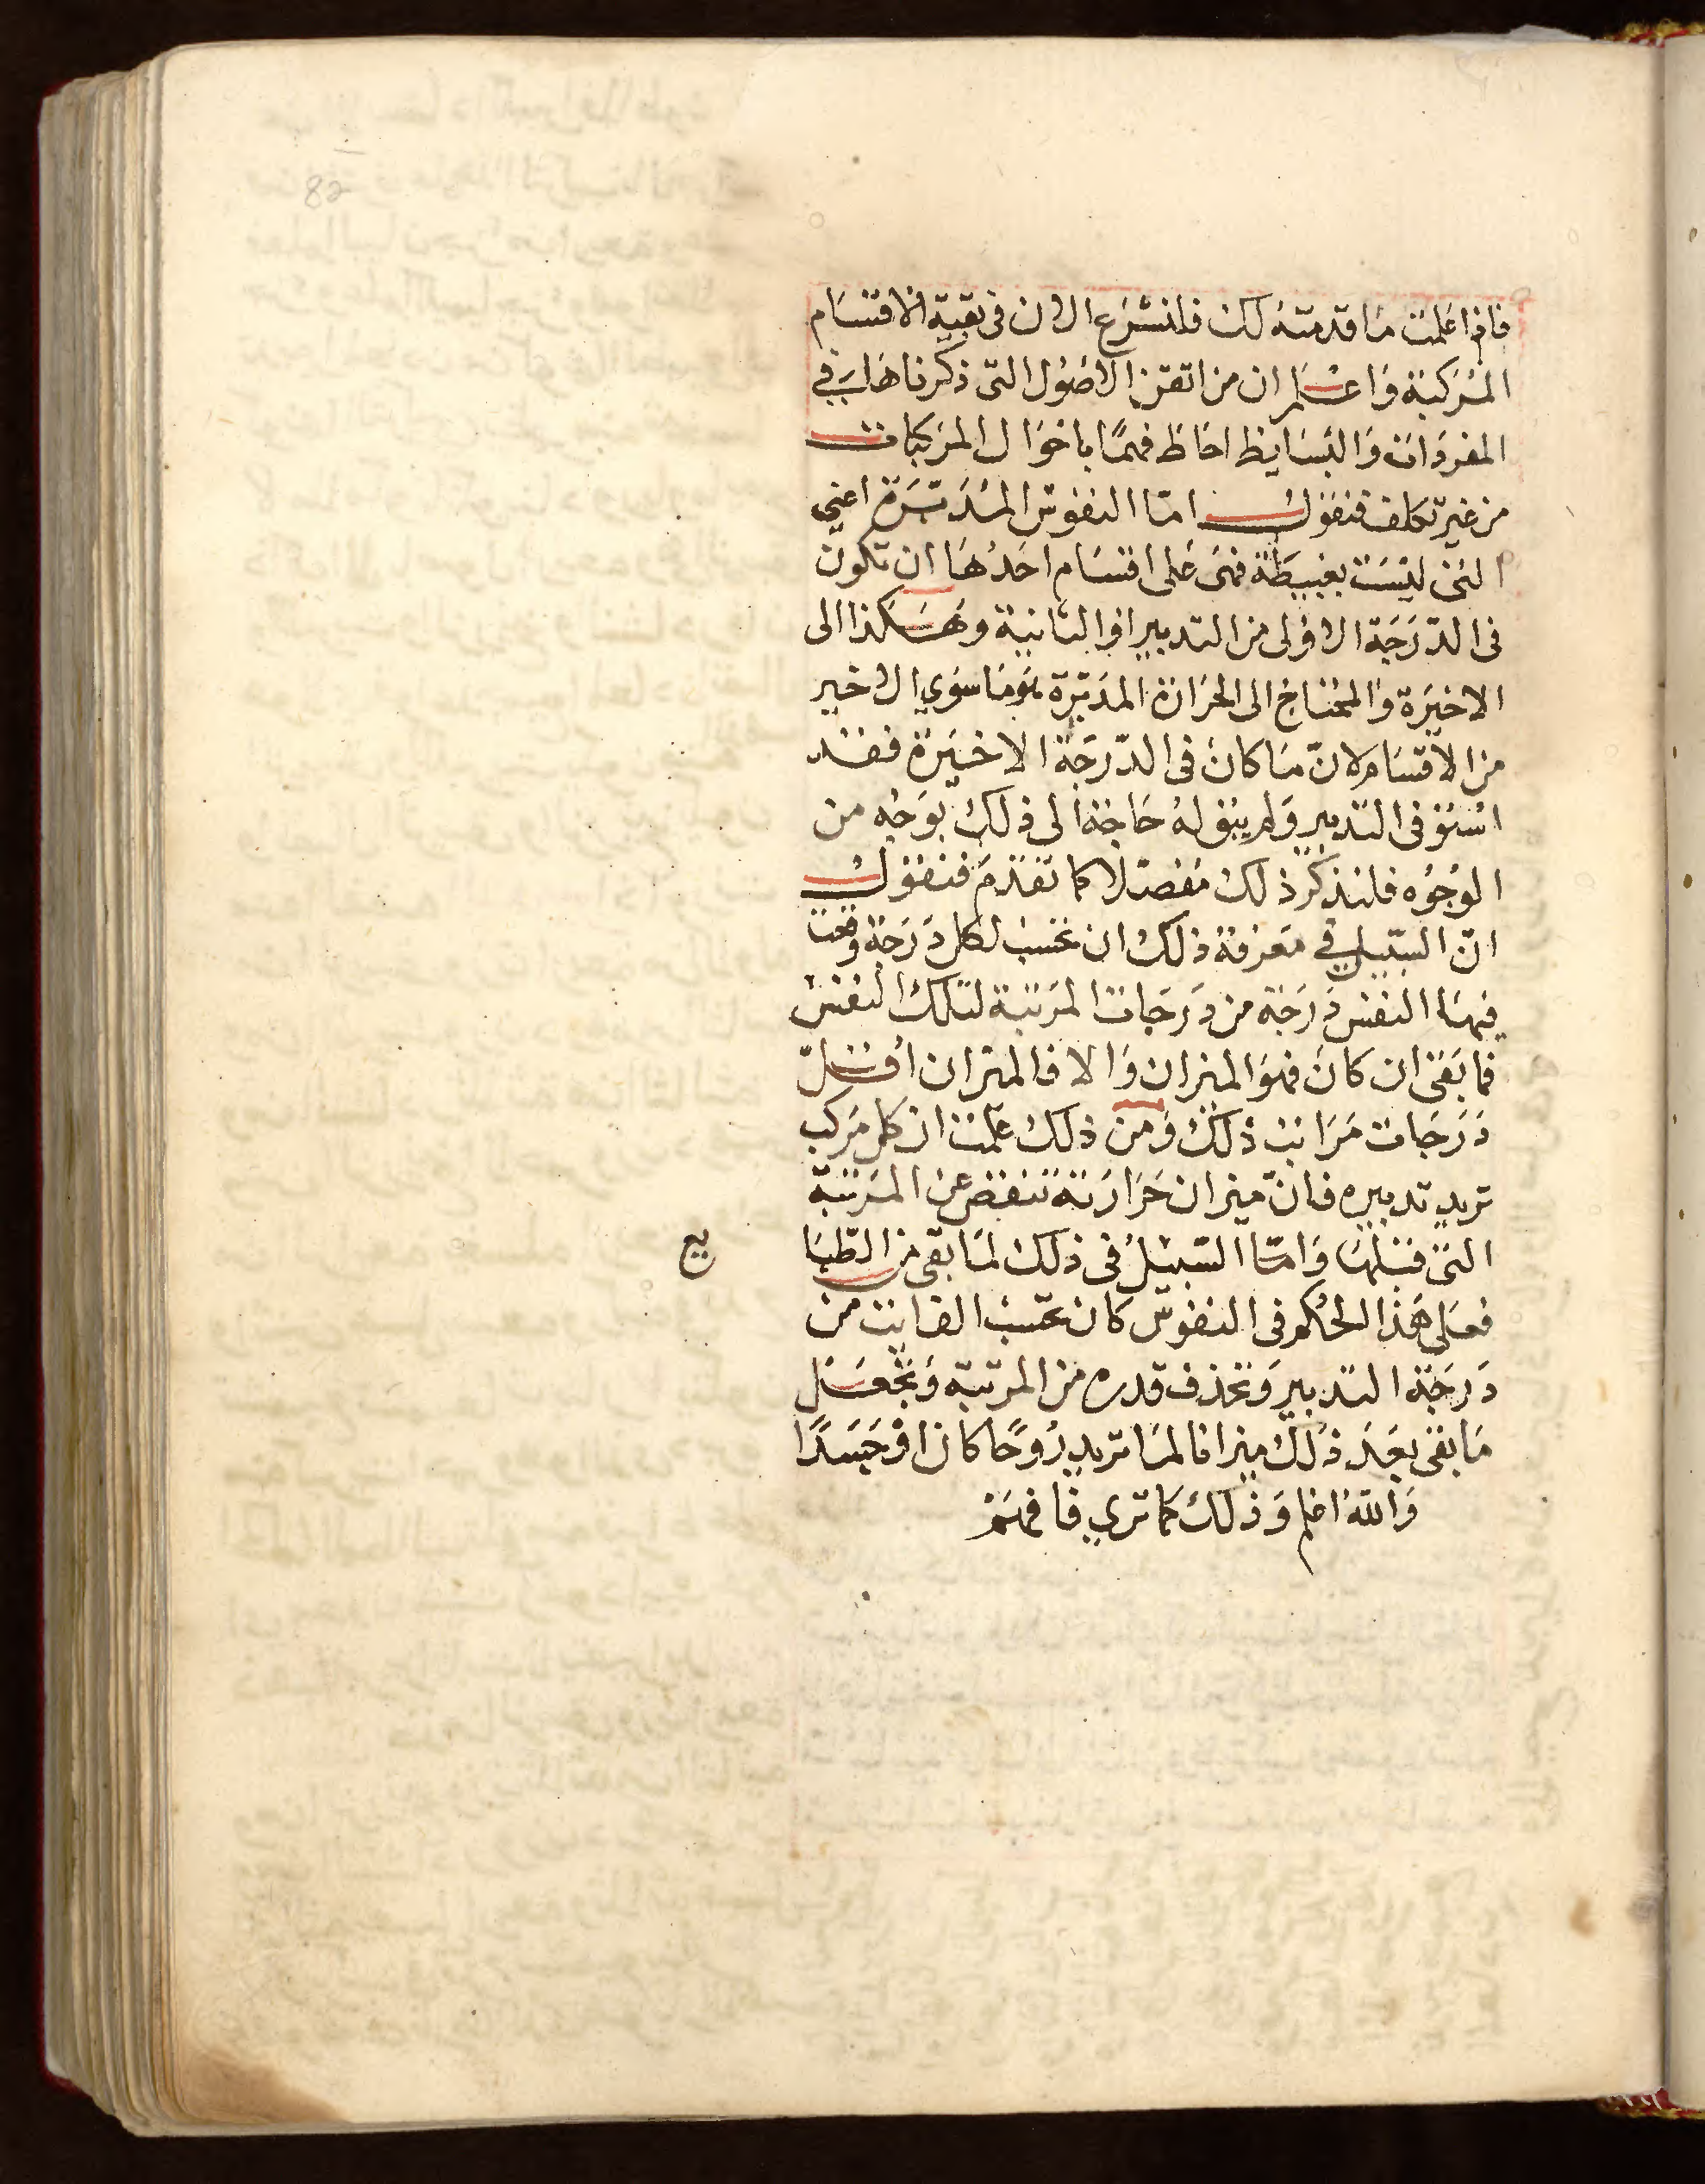 82
فاذا علمت ما قدمته لك فلنشرع الان في بقية الاقسام
المركبة واعلم ان من اتقن الاصول التي ذكرناها في
المفردات والبسايط احاط فهمًا باحوال المركبات
من غير تكلف فنقول امّا النفوس المدبّرة اعني
التي ليست ببسيطة فهي على اقسام احدها ان تكون
في الدّرجة الاولى من التدبير او الثانية وهكذا الى
الاخيرة والمحتاج الى الحرارة المدبّرة هو ما سوي الاخير
من الاقسام لانّ ما كان في الدّرجة الاخيرة فقد
استوفى التدبير ولم يبق له حاجة الى ذلك بوجه من
الوجوه فلنذكر ذلك مفصّلا كما تقدّم فنقول
انّ السّبيل في معرفة ذلك ان تحسب لكل درجة وقعت
فيها النفس درجة من درجات المرتبة لتلك النفس
فما بقي ان كان فهو الميزان والا فالميزان اقلّ
درجات مراتب ذلك ومن ذلك علمت ان كل مركب
تريد تدبيره فانّ ميزان حرارته تنقص عن المرتبة
التي قبلها وامّا السّبيل في ذلك لما بقي من الطّبا
يع
فعلى هذا الحكم في النفوس كان تحسب الفايت من
درجة التدبير وتحذف قدره من المرتبة وتجعل
ما بقي بعد ذلك ميزانا لما تريد روحًا كان او جسدًا
والله اعلم وذلك كما تري فافهم